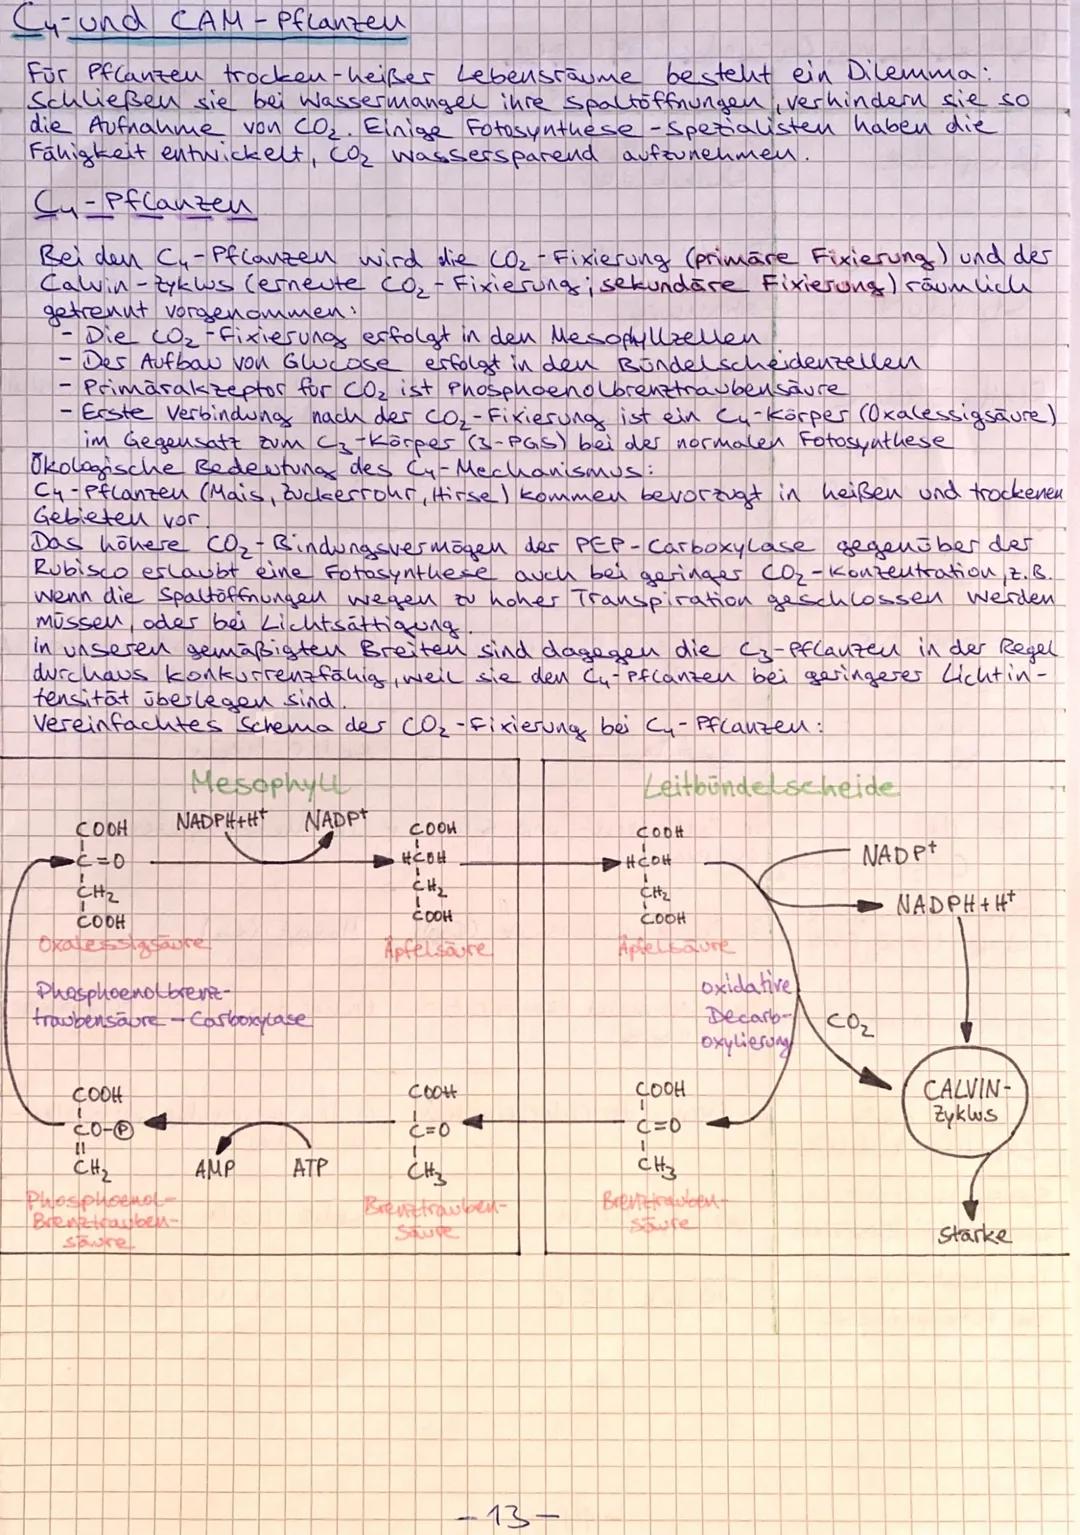 C₄-und CAM-Pflanzen
Für Pflanzen trocken-heißer Lebensräume besteht ein Dilemma:
Schließen sie bei Wassermangel ihre Spaltöffnungen, verhindern sie so
die Aufnahme von CO₂. Einige Fotosynthese-Spezialisten haben die
Fähigkeit entwickelt, CO₂ wassersparend aufzunehmen.
C₄-Pflanzen
Bei den C₄-Pflanzen wird die CO₂-Fixierung (primäre Fixierung) und der
Calvin-Zyklus (erneute CO₂-Fixierung; sekundäre Fixierung) räumlich
getrennt vorgenommen:
- Die CO₂-Fixierung erfolgt in den Mesophyllzellen
- Der Aufbau von Glucose erfolgt in den Bündelscheidenzellen
- Primärakzeptor für CO₂ ist Phosphoenolbrenztraubensäure
- Erste Verbindung nach der CO₂-Fixierung ist ein C₄-Körper (Oxalessigsäure)
im Gegensatz zum C₃-Körper (3-PGS) bei der normalen Fotosynthese
Ökologische Bedeutung des C₄-Mechanismus:
C₄-Pflanzen (Mais, Zuckerrohr, Hirse) kommen bevorzugt in heißen und trockenen
Gebieten vor.
Das höhere CO₂-Bindungsvermögen der PEP-Carboxylase gegenüber der
Rubisco erlaubt eine Fotosynthese auch bei geringer CO₂-Konzentration, z.B.
wenn die Spaltöffnungen wegen zu hoher Transpiration geschlossen werden
müssen, oder bei Lichtsättigung.
in unseren gemäßigten Breiten sind dagegen die C₃-Pflanzen in der Regel
durchaus konkurrenzfähig, weil sie den C₄-Pflanzen bei geringerer Lichtin-
tensität überlegen sind.
Vereinfachtes Schema der CO₂-Fixierung bei C₄-Pflanzen:
Mesophyll
NADPH+H⁺ NADP⁺
COOH
C=O
CH₂
COOH
Oxalessigsäure
COOH
HCOH
CH₂
COOH
Äpfelsäure
Phosphoenolbrenz-
traubensäure - Carboxylase
COOH
CO-Ⓟ
CH₂
Phosphoenol-
Brenztrauben-
säure
AMP ATP
COOH
C=O
CH₃
Brenztrauben-
säure
Leitbündelscheide
COOH
HCOH
CH₂
COOH
Äpfelsäure
NADP⁺
NADPH+H⁺
oxidative
Decarb-
oxylierung
CO₂
COOH
C=O
CH₃
Brenztrauben-
säure
CALVIN-
Zyklus
Stärke
-13-